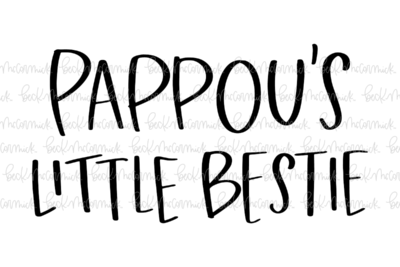 PAPPOU'S
LITTLE BESTIE